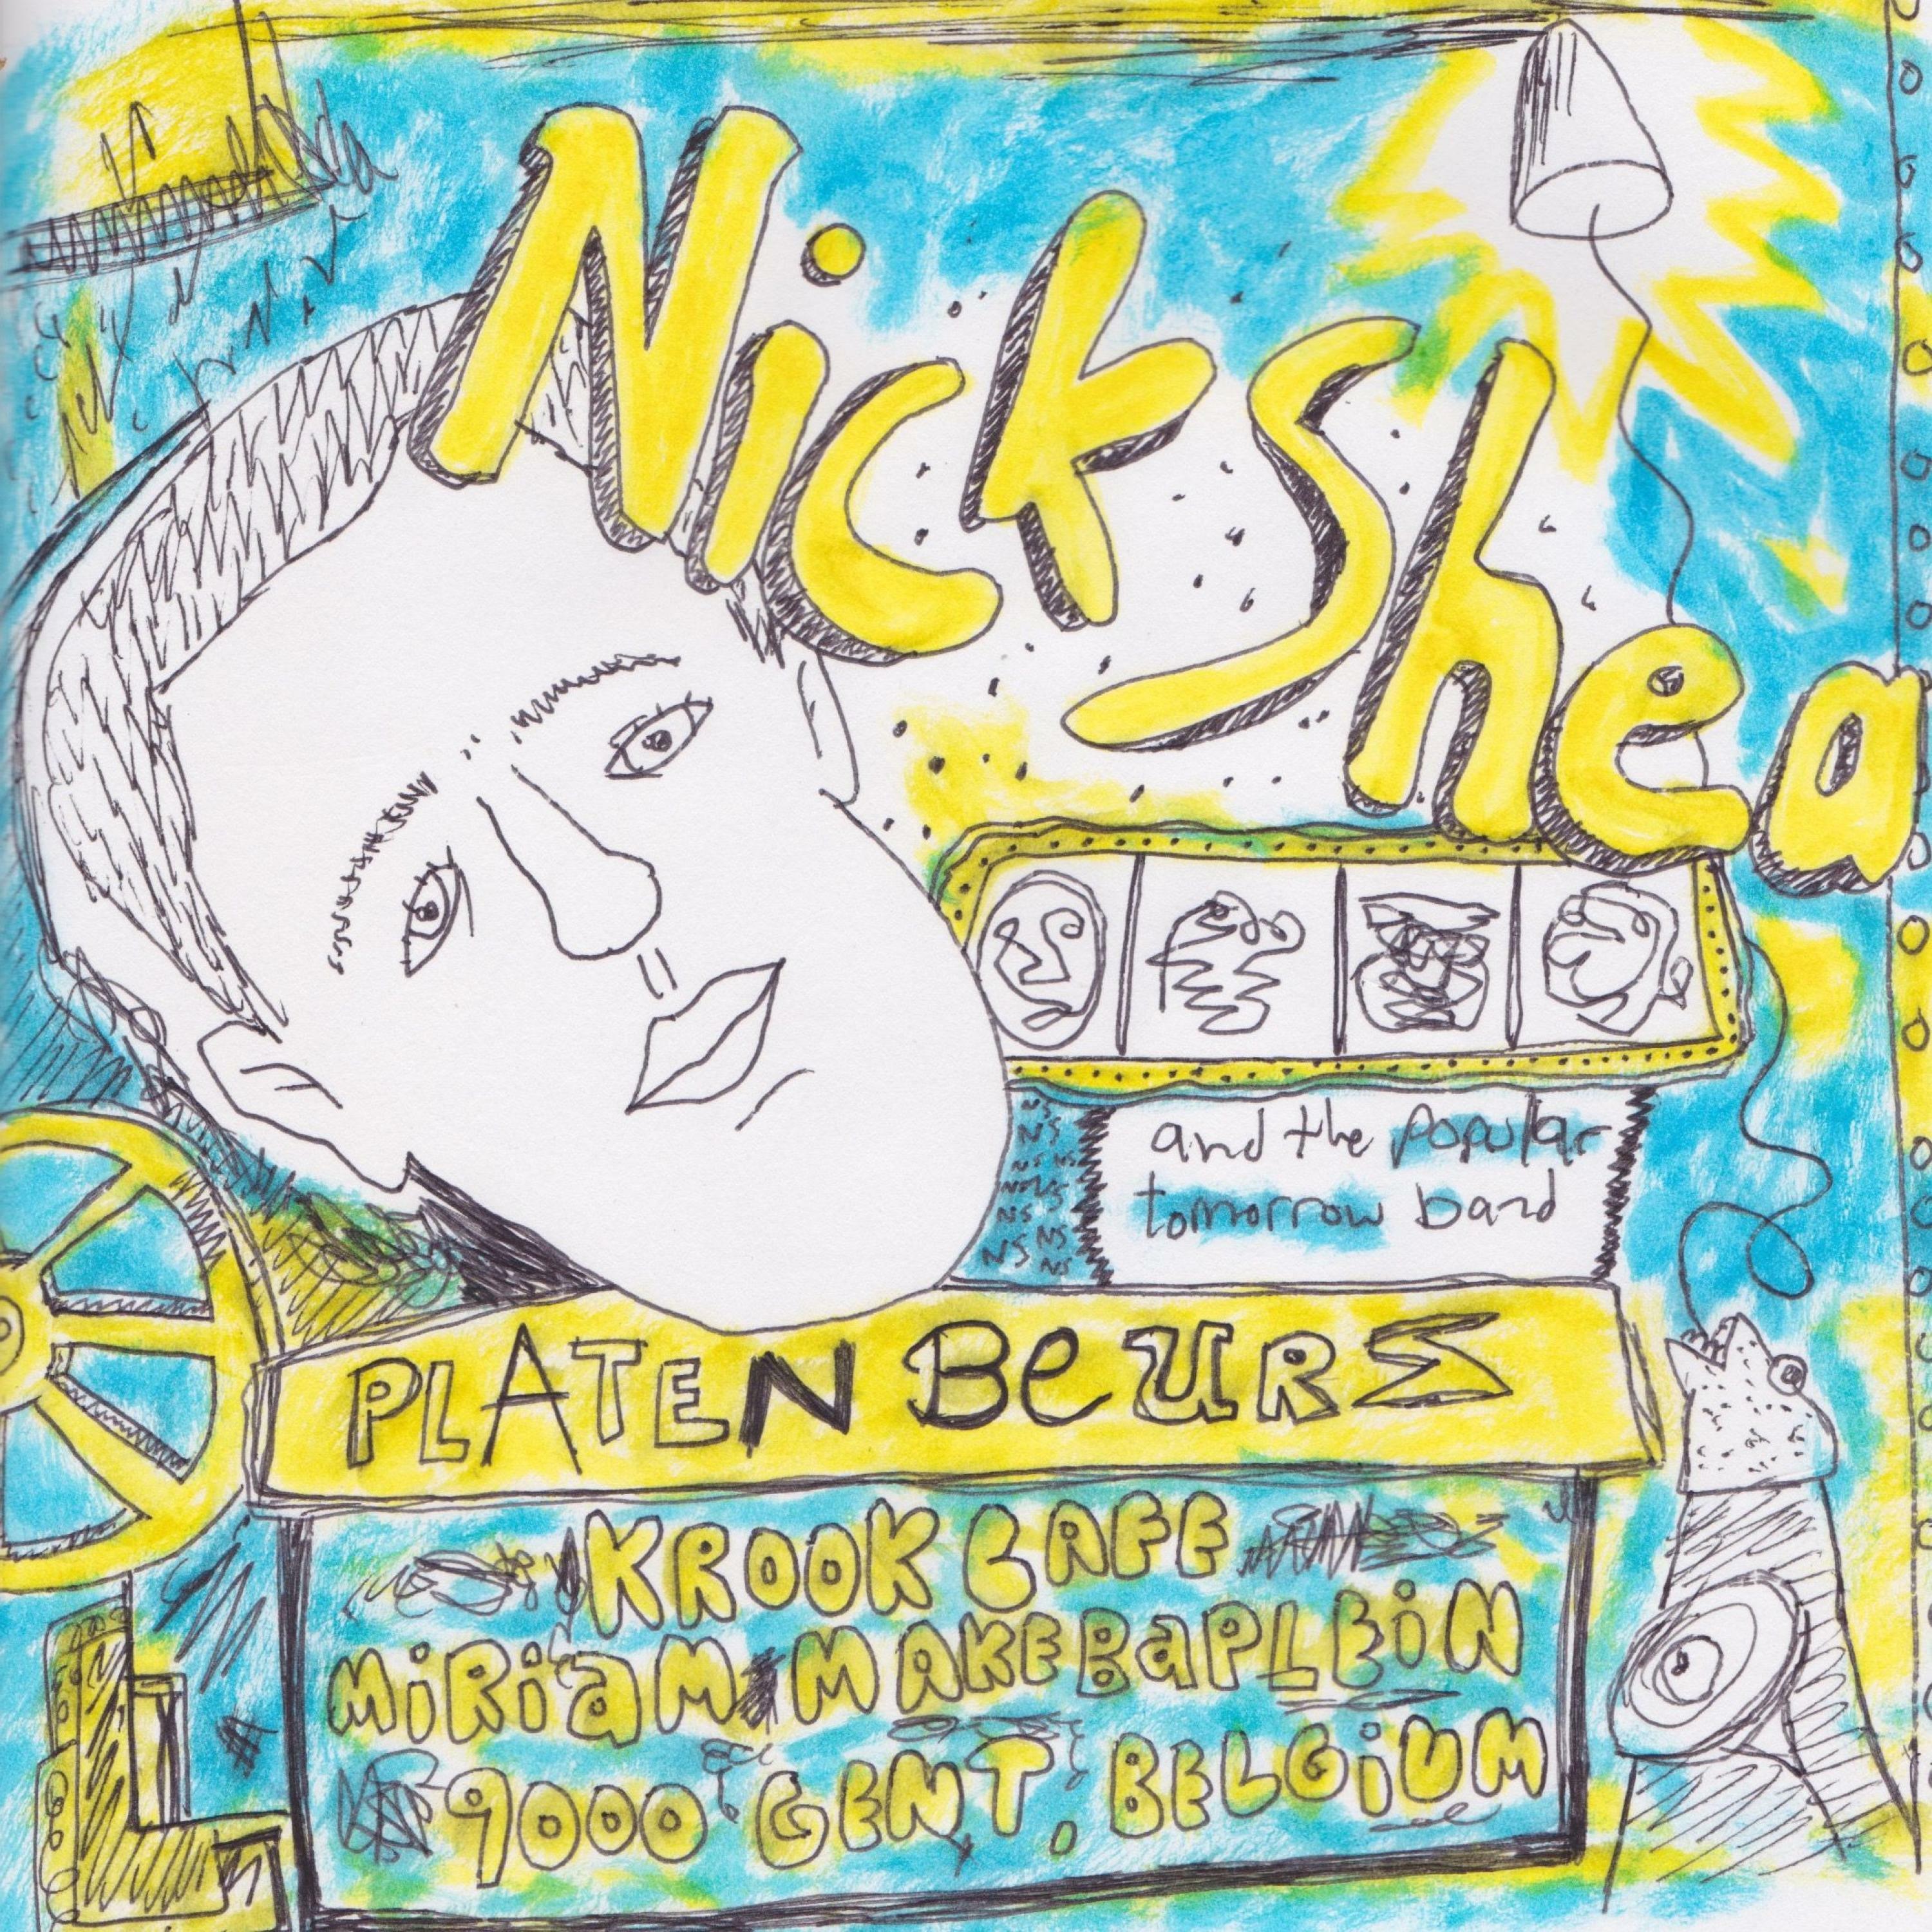 Nick Shea
and the popular
tomorrow band
NS
NS
NS NS
NS NS
NS NS
NS NS
PLATEN BEURS
KROOK CAFE
MiRiaM MAKEBaPLEiN
9000 GENT, BELGiUM